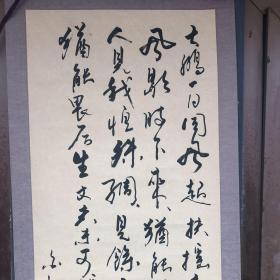 大鵬一日同風起扶搖
風歇時下來猶能
人見我恒殊調見餘
猶能畏后生丈夫未可